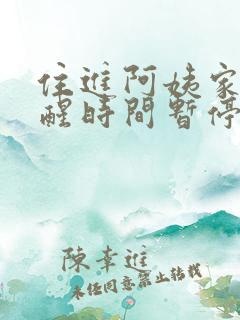 住進阿姨家
醒時間暫停
陳幸進
未任同意禁止轉載